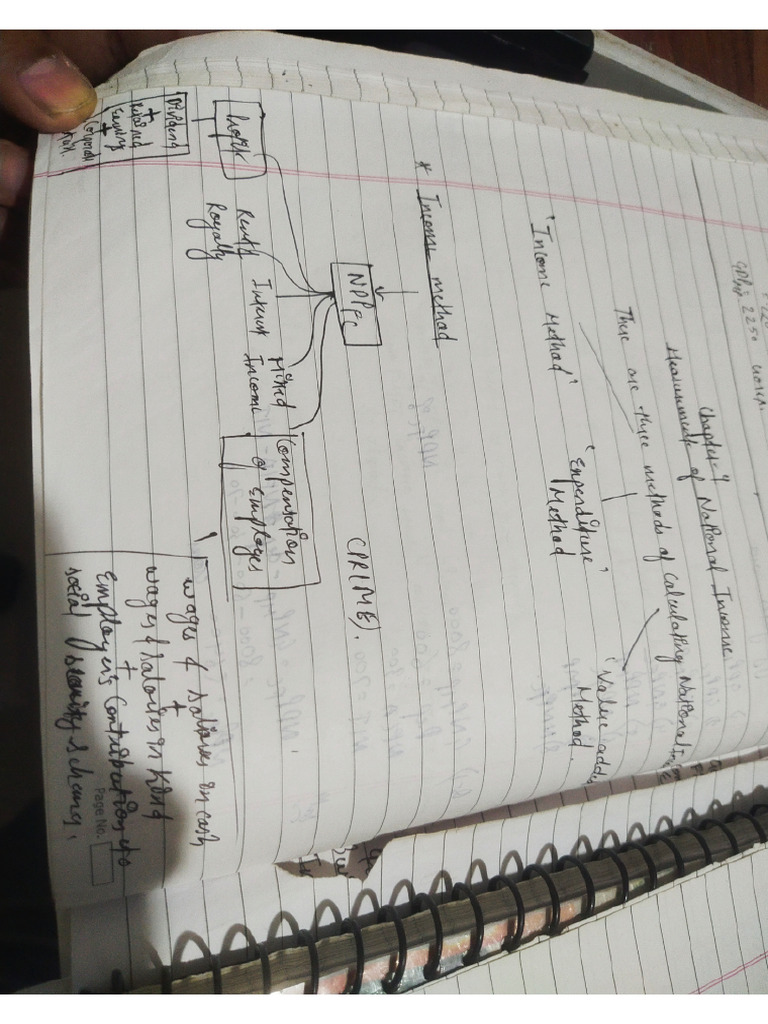 GDPmp 2250
Chapter-4
Measurement of National Income
There are three methods of Calculating National Income
'Income Method'
'Expenditure'
Method
'Value added
Method.
* Income method
NDPFC
C(PRIME).
Profit
Rent &
Royalty
Interest
Mixed
Income
Compensation
of Employees
Dividend
+
+
Corporate
wages & salaries in cash
+
wages & salaries in kind
+
Employer's Contribution to
social security schemes.
Page No.